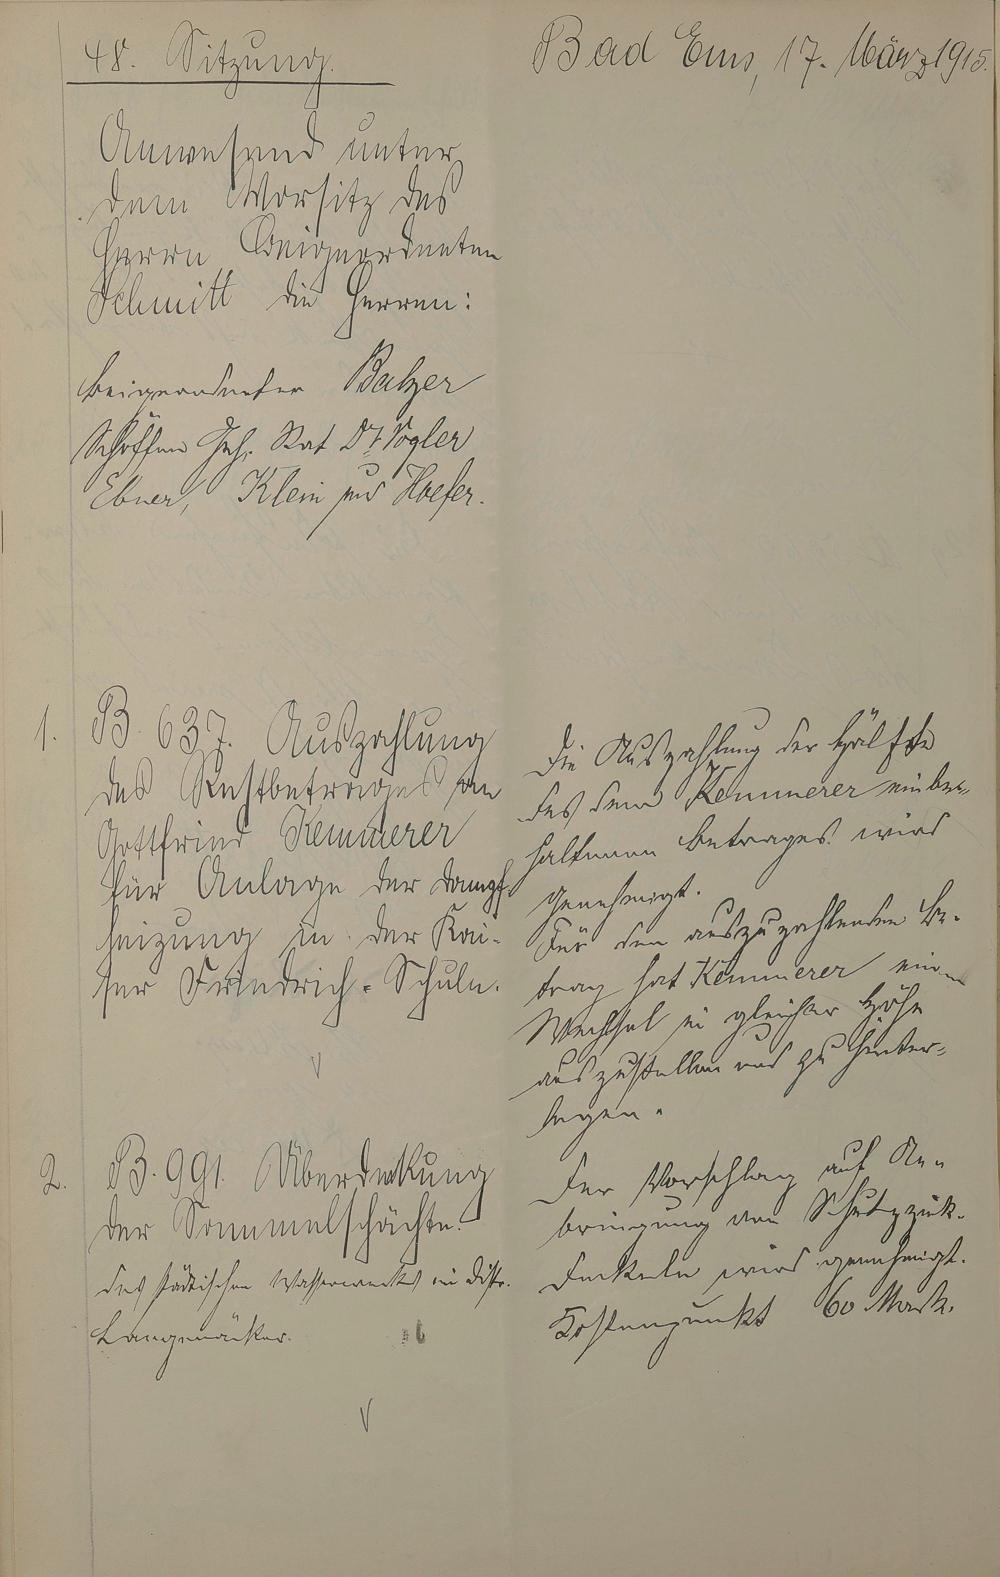 48. Sitzung.
Bad Ems, 17. März 1915.
Anwesend unter
dem Vorsitz des
Herrn Beigeordneten
Schmitt die Herren:
Beigeordneter Balzer
Schöffen Geh. Rat Dr. Vogler
Ebner, Klein und Hoefer.
1.
B. 637. Auszahlung
des Restbetrages an
Gottfried Kemmerer
für Anlage der Dampf
heizung in der Kai-
ser Friedrich-Schule.
Die Auszahlung der Hälfte
des dem Kemmerer einbe-
haltenen Betrages wird
genehmigt.
Für den auszuzahlenden Be-
trag hat Kemmerer einen
Wechsel in gleicher Höhe
auszustellen und zu hinter-
legen.
2.
B. 991. Überdeckung
der Sammelschächte.
des städtischen Wasserwerks im Distr.
Langenäcker.
Der Vorschlag auf An-
bringung von Schutzzink-
deckeln wird genehmigt.
Kostenpunkt 60 Mark.